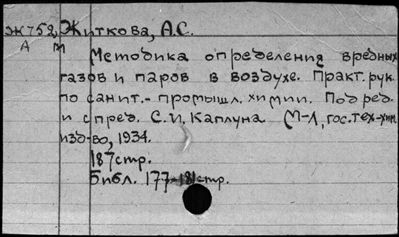 Ж752, Житкова, А.С.
А м
Методика определения вредных
газов и паров в воздухе. Практ. рук.
по санит.- промышл. химии. Под ред.
и с пред. С.И. Каплуна М-Л, гос. тех-хим.
изд-во, 1934.
187 стр.
Библ. 177-181 стр.